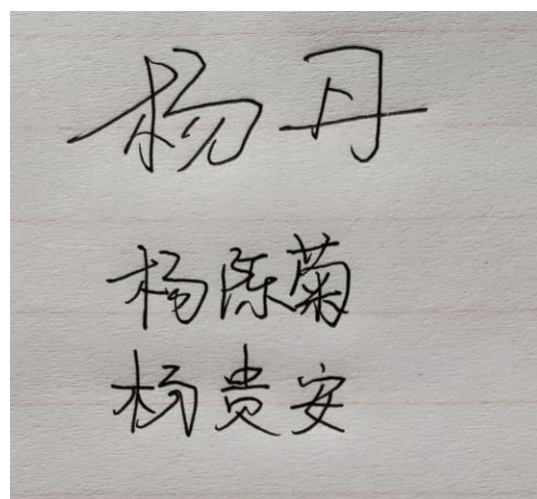 杨丹
杨陈菊
杨贵安